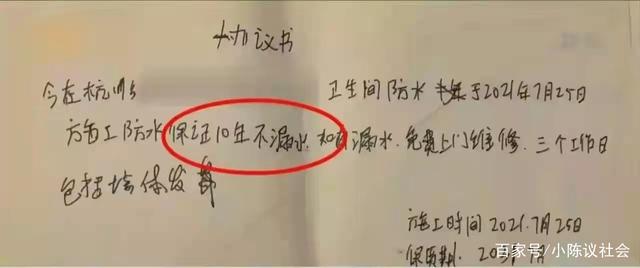 协议书
今在杭州 卫生间防水 于2021年7月25日
施工防水保证10年不漏水.如有漏水.免费上门维修.三个工作日
包括墙体发霉
施工时间2021.7月25日
保质期.203 月
百家号/小陈议社会